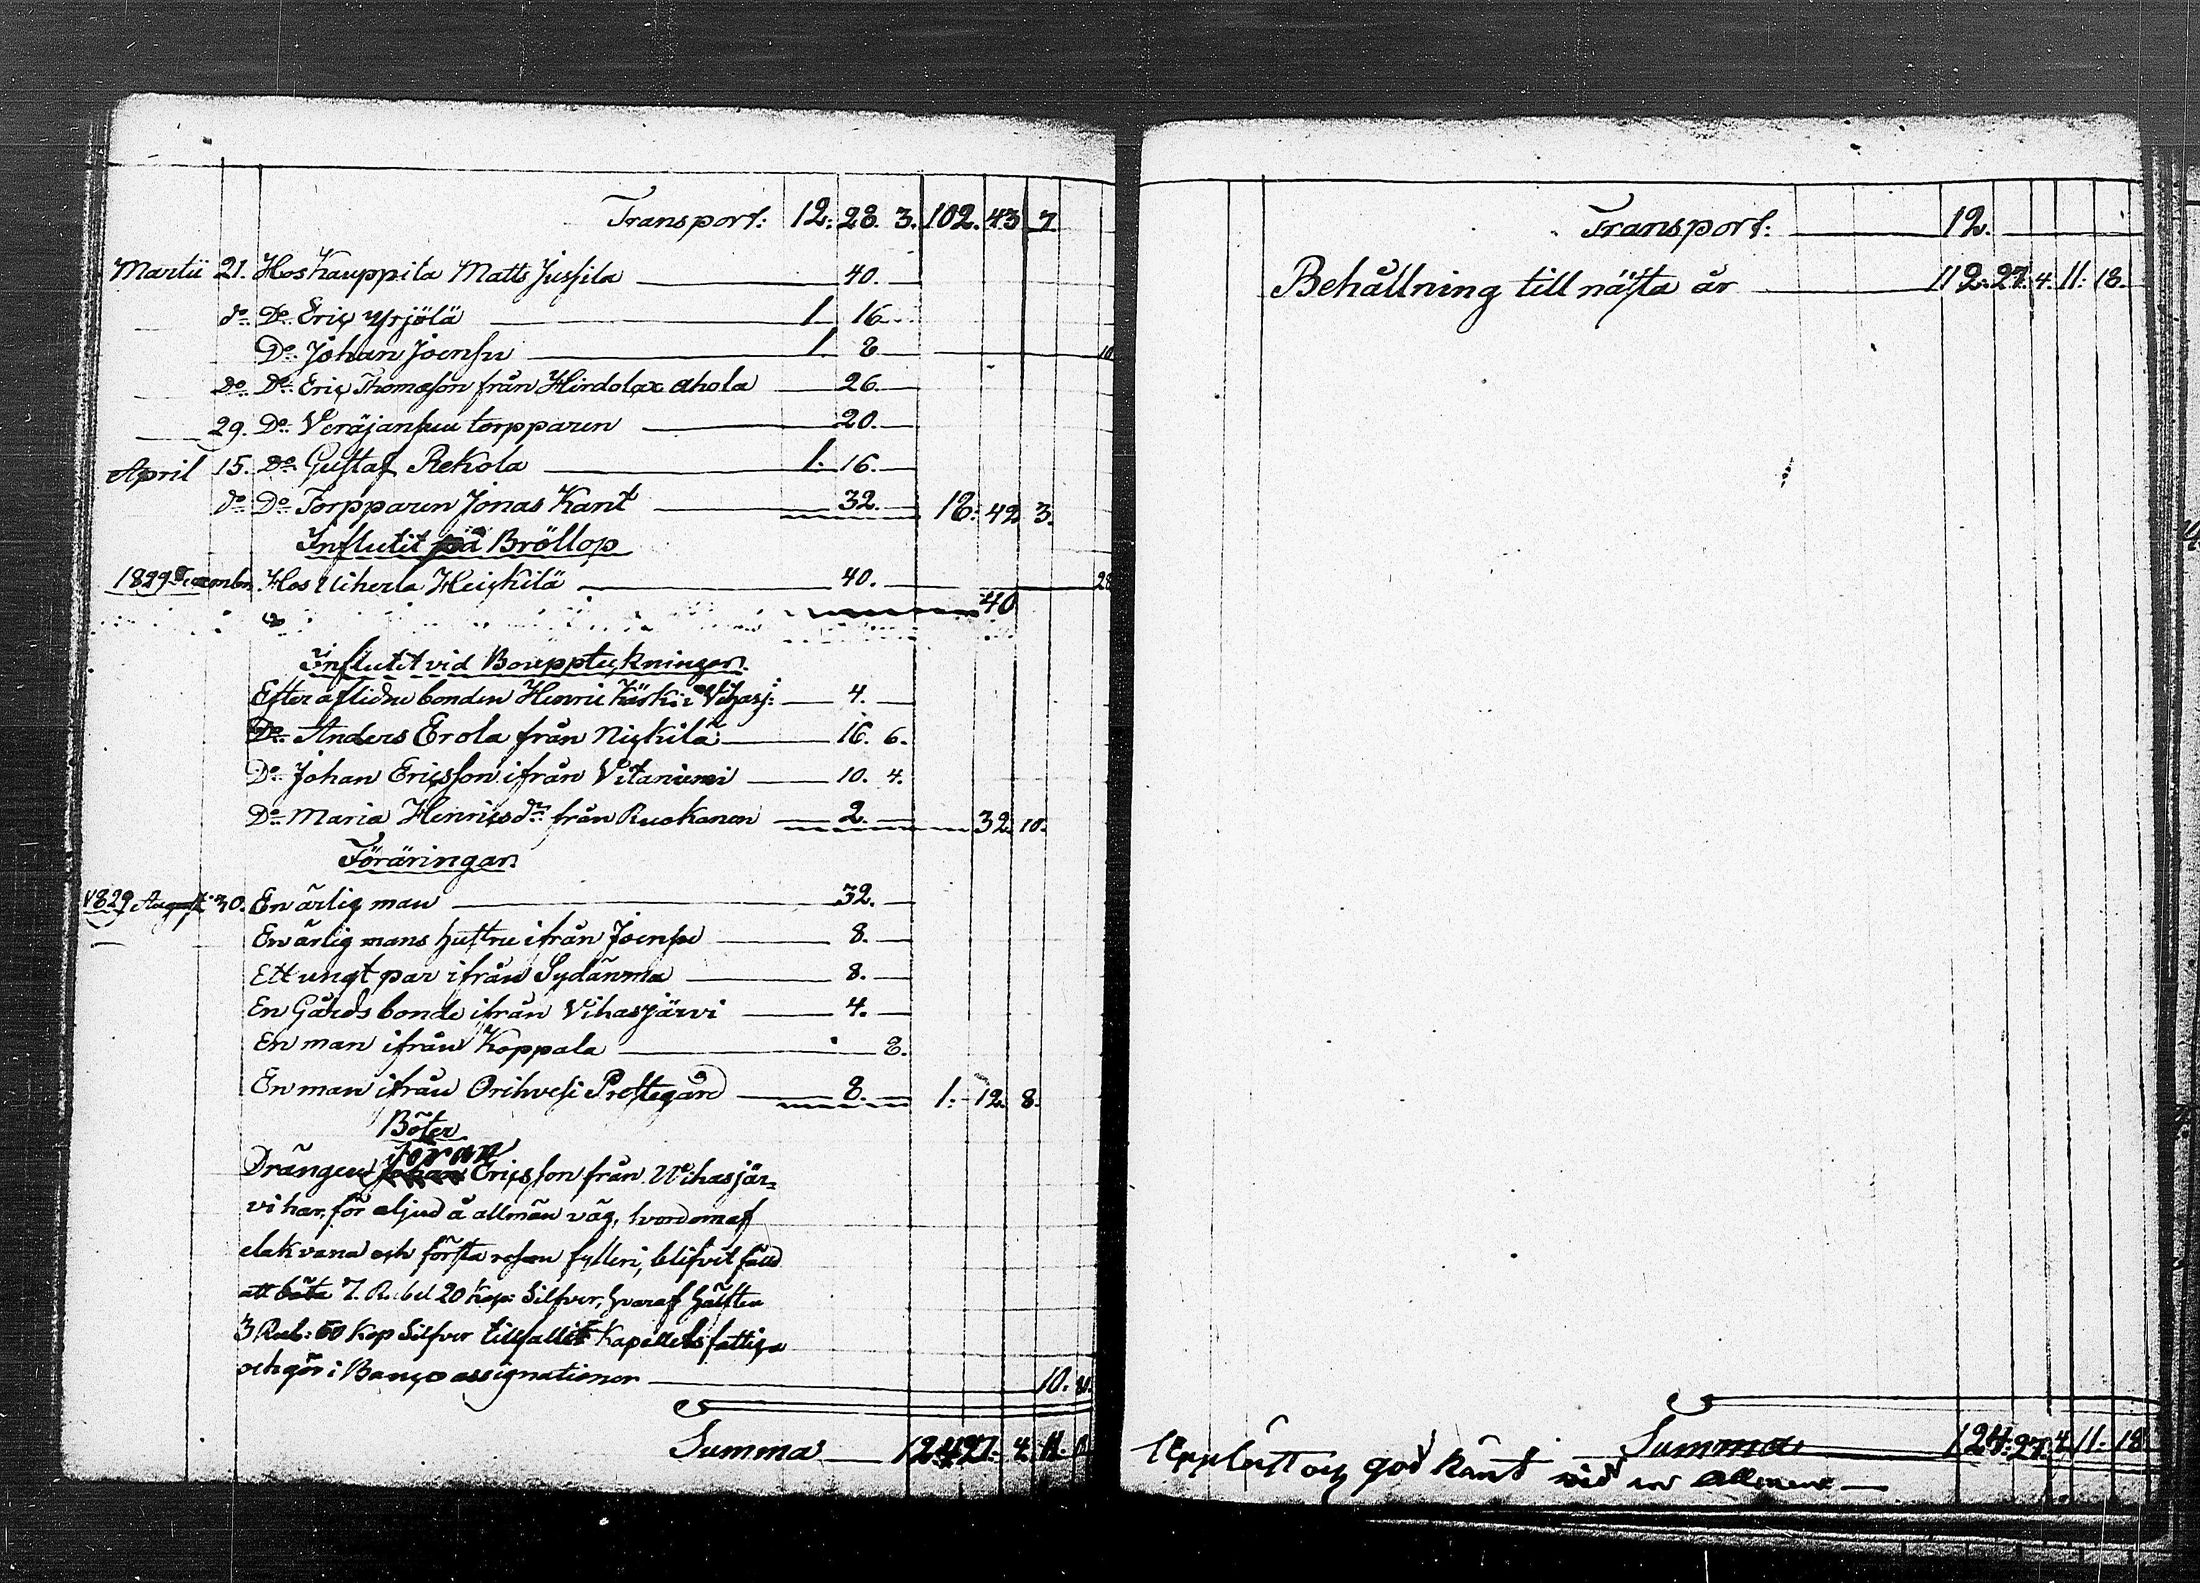 Transport: 12. 28. 3. 102. 43 7
Martii 21. Hos Kauppila Matts Jussila 40.
do Do Eric Yrjölä 1. 16
Do Johan Joensu 1. 8 10
Do Do Eric Thomasson från Hirdolax Ahola 26.
29. Do Veräjansuu torpparen 20.
April 15. Do Gustaf Rekola 1. 16.
do Do Torpparen Jonas Kant 32. 12. 3.
Influtit på Bröllop
1829 December Hos Uiherla Heickilä 40. 28
40
Influtit vid Bouppteckningar
Efter aflidne bonden Henric Käski i Vihasj: 4.
Do Anders Erola från Nickilä 16. 6.
Do Johan Ericsson ifrån Vitaniemi 10. 4.
Do Maria Henricsdr från Ruokonen 2. 32. 10.
Föräringar
1829 Augusti 30. En ärlig man 32.
En ärlig mans hustru ifrån Joensu 8.
Ett ungt par ifrån Sydänma 8.
En Gårds bonde ifrån Vihasjärvi 4.
En man ifrån Koppala 8.
En man ifrån Orihvesi Prestegård 8. 1. 12. 8.
Böter
Göran
Drängen Johan Ericsson från Vihasjär=
vi har, för oljud å allmän väg, hvordom af
elak vana och första resan fylleri, blifvit fäld
att böta 7. Rubel 20 Kop: Silfver, hvaraf hälften
3 Rub: 60 Kop Silfver tillfallit Kapellets fattiga
och gör i Banco assignationer 10.
Summa 124 27. 4. 11.
Transport: 12.
Behållning till nästa år 112. 27. 4. 11. 18.
Summa 124. 27. 4. 11. 18
Uppläst och god känt vid en allmen